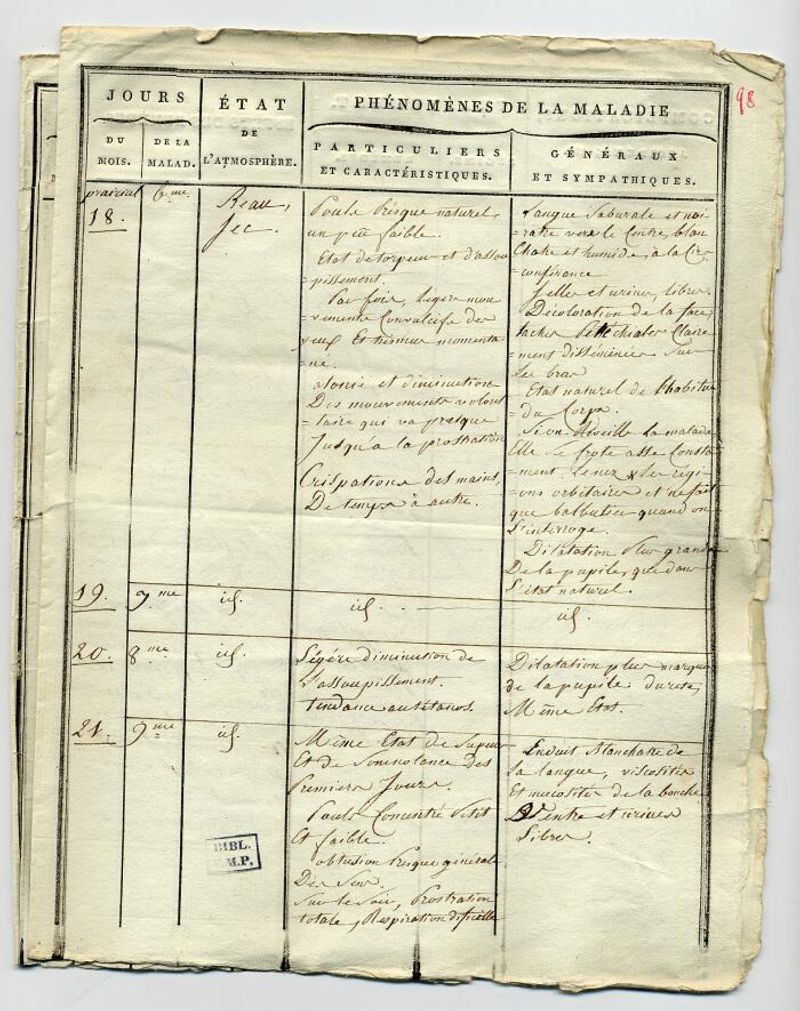 98
JOURS
DU MOIS.
DE LA MALAD.
ÉTAT
DE
L'ATMOSPHÈRE.
PHÉNOMÈNES DE LA MALADIE
PARTICULIERS
ET CARACTÉRISTIQUES.
GÉNÉRAUX
ET SYMPATHIQUES.
prairial
18.
6.me
Beau,
Sec.
Pouls Présque naturel,
un peu faible.
Etat de torpeur et d'assou
=pissement.
Par fois, légers mou
=vements Convulsifs des
yeux Et trismus momenta
=né.
atonie et diminution
Des mouvements volont
=taire qui va presque
Jusqu'à la prostration
Crispations des mains,
De temps à autre.
Langue Saburale et noi-
=ratre vers le Centre, blan
Chatre et humide, à la Cir,
=conférence
Selles et urines, libres.
Décoloration de la face,
taches Pétéchiales Claire
=ment disséminées Sur
Les bras
Etat naturel de l'habitue
=du Corps.
Si on Réveille la malade
Elle Se frote asse Consta
=ment Le nez & les régi-
=ons orbitaires et ne fait
que balbutier quand on
L'interroge.
Dilatation Plus grande
De la pupile, que dans
L'état naturel.
19.
7.me
id.
id.
id.
20.
8.me
id.
Légére diminution de
L'assoupissement.
tendance au tétanos.
Dilatation plus marquée
de la pupile, du reste,
Même Etat.
21.
9.me
id.
Même Etat de Stupeur
Et de Somnolance des
Premiers Jours.
Pouls Concentré Petit
Et faible.
obtusion Presque générale
Des Sens.
Sur le Soir, Prostration
totale, Respiration dificille
Enduit Blanchatre de
La langue, viscosités
Et mucosités de la bouche
Ventre et urines
Libres.
BIBL.
M.P.